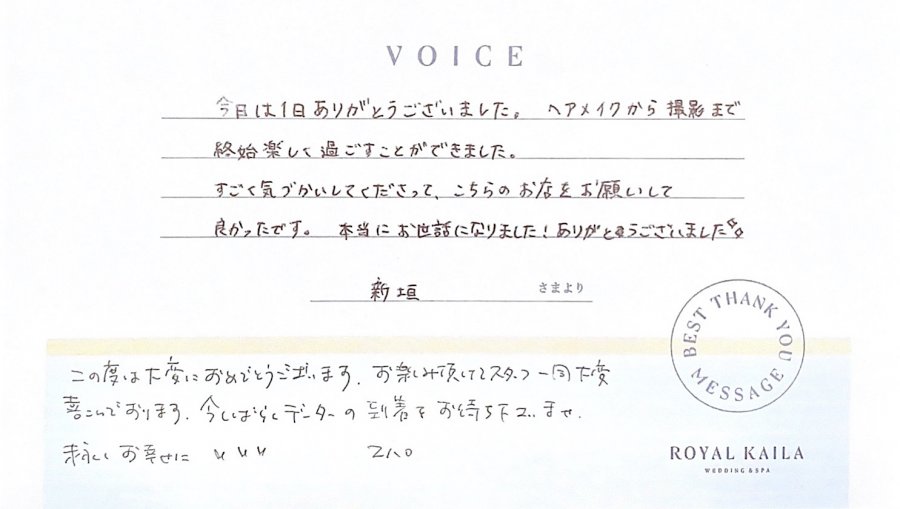 VOICE
今日は1日ありがとうございました。 ヘアメイクから撮影まで
終始楽しく過ごすことができました。
すごく気づかいしてくださって、こちらのお店をお願いして
良かったです。 本当にお世話になりました!ありがとうございました
新垣 さまより
BEST THANK YOU MESSAGE
この度は大変におめでとうございます。お楽しみ頂けてスタッフ一同大変
喜こんでおります。今しばらくデーターの到着をお待ち下さいませ。
末永くお幸せに
ROYAL KAILA
WEDDING & SPA